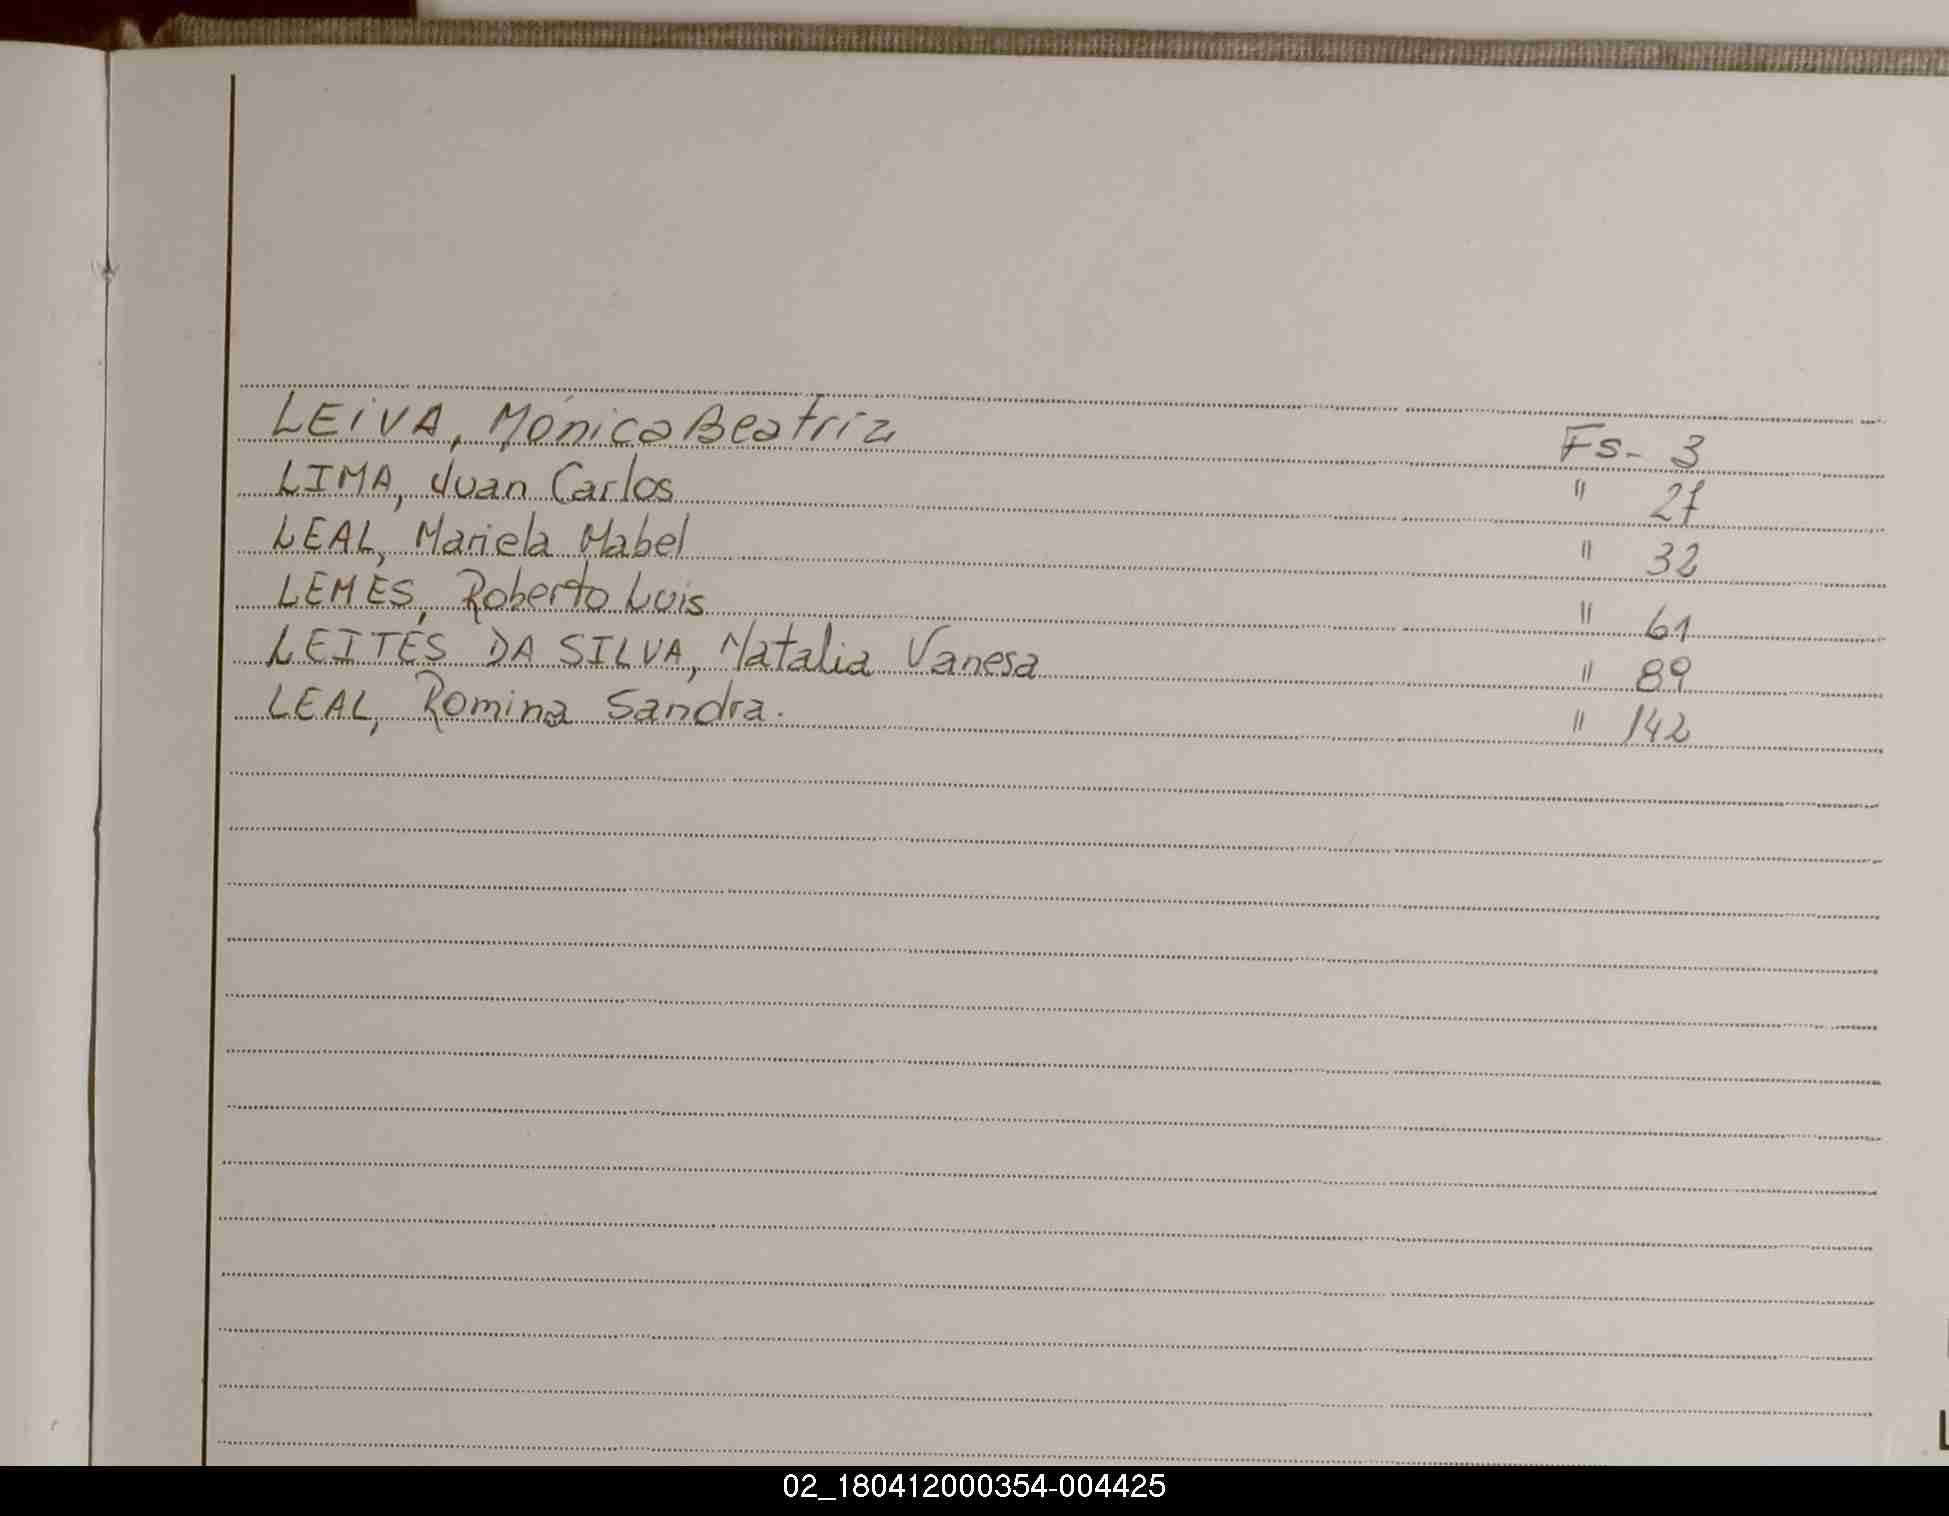 LEIVA, Mónica Beatriz Fs- 3
LIMA, Juan Carlos " 27
LEAL, Mariela Mabel " 32
LEMES, Roberto Luis " 61
LEITES DA SILVA, Natalia Vanesa " 89
LEAL, Romina Sandra. " 142
L
02_180412000354-004425